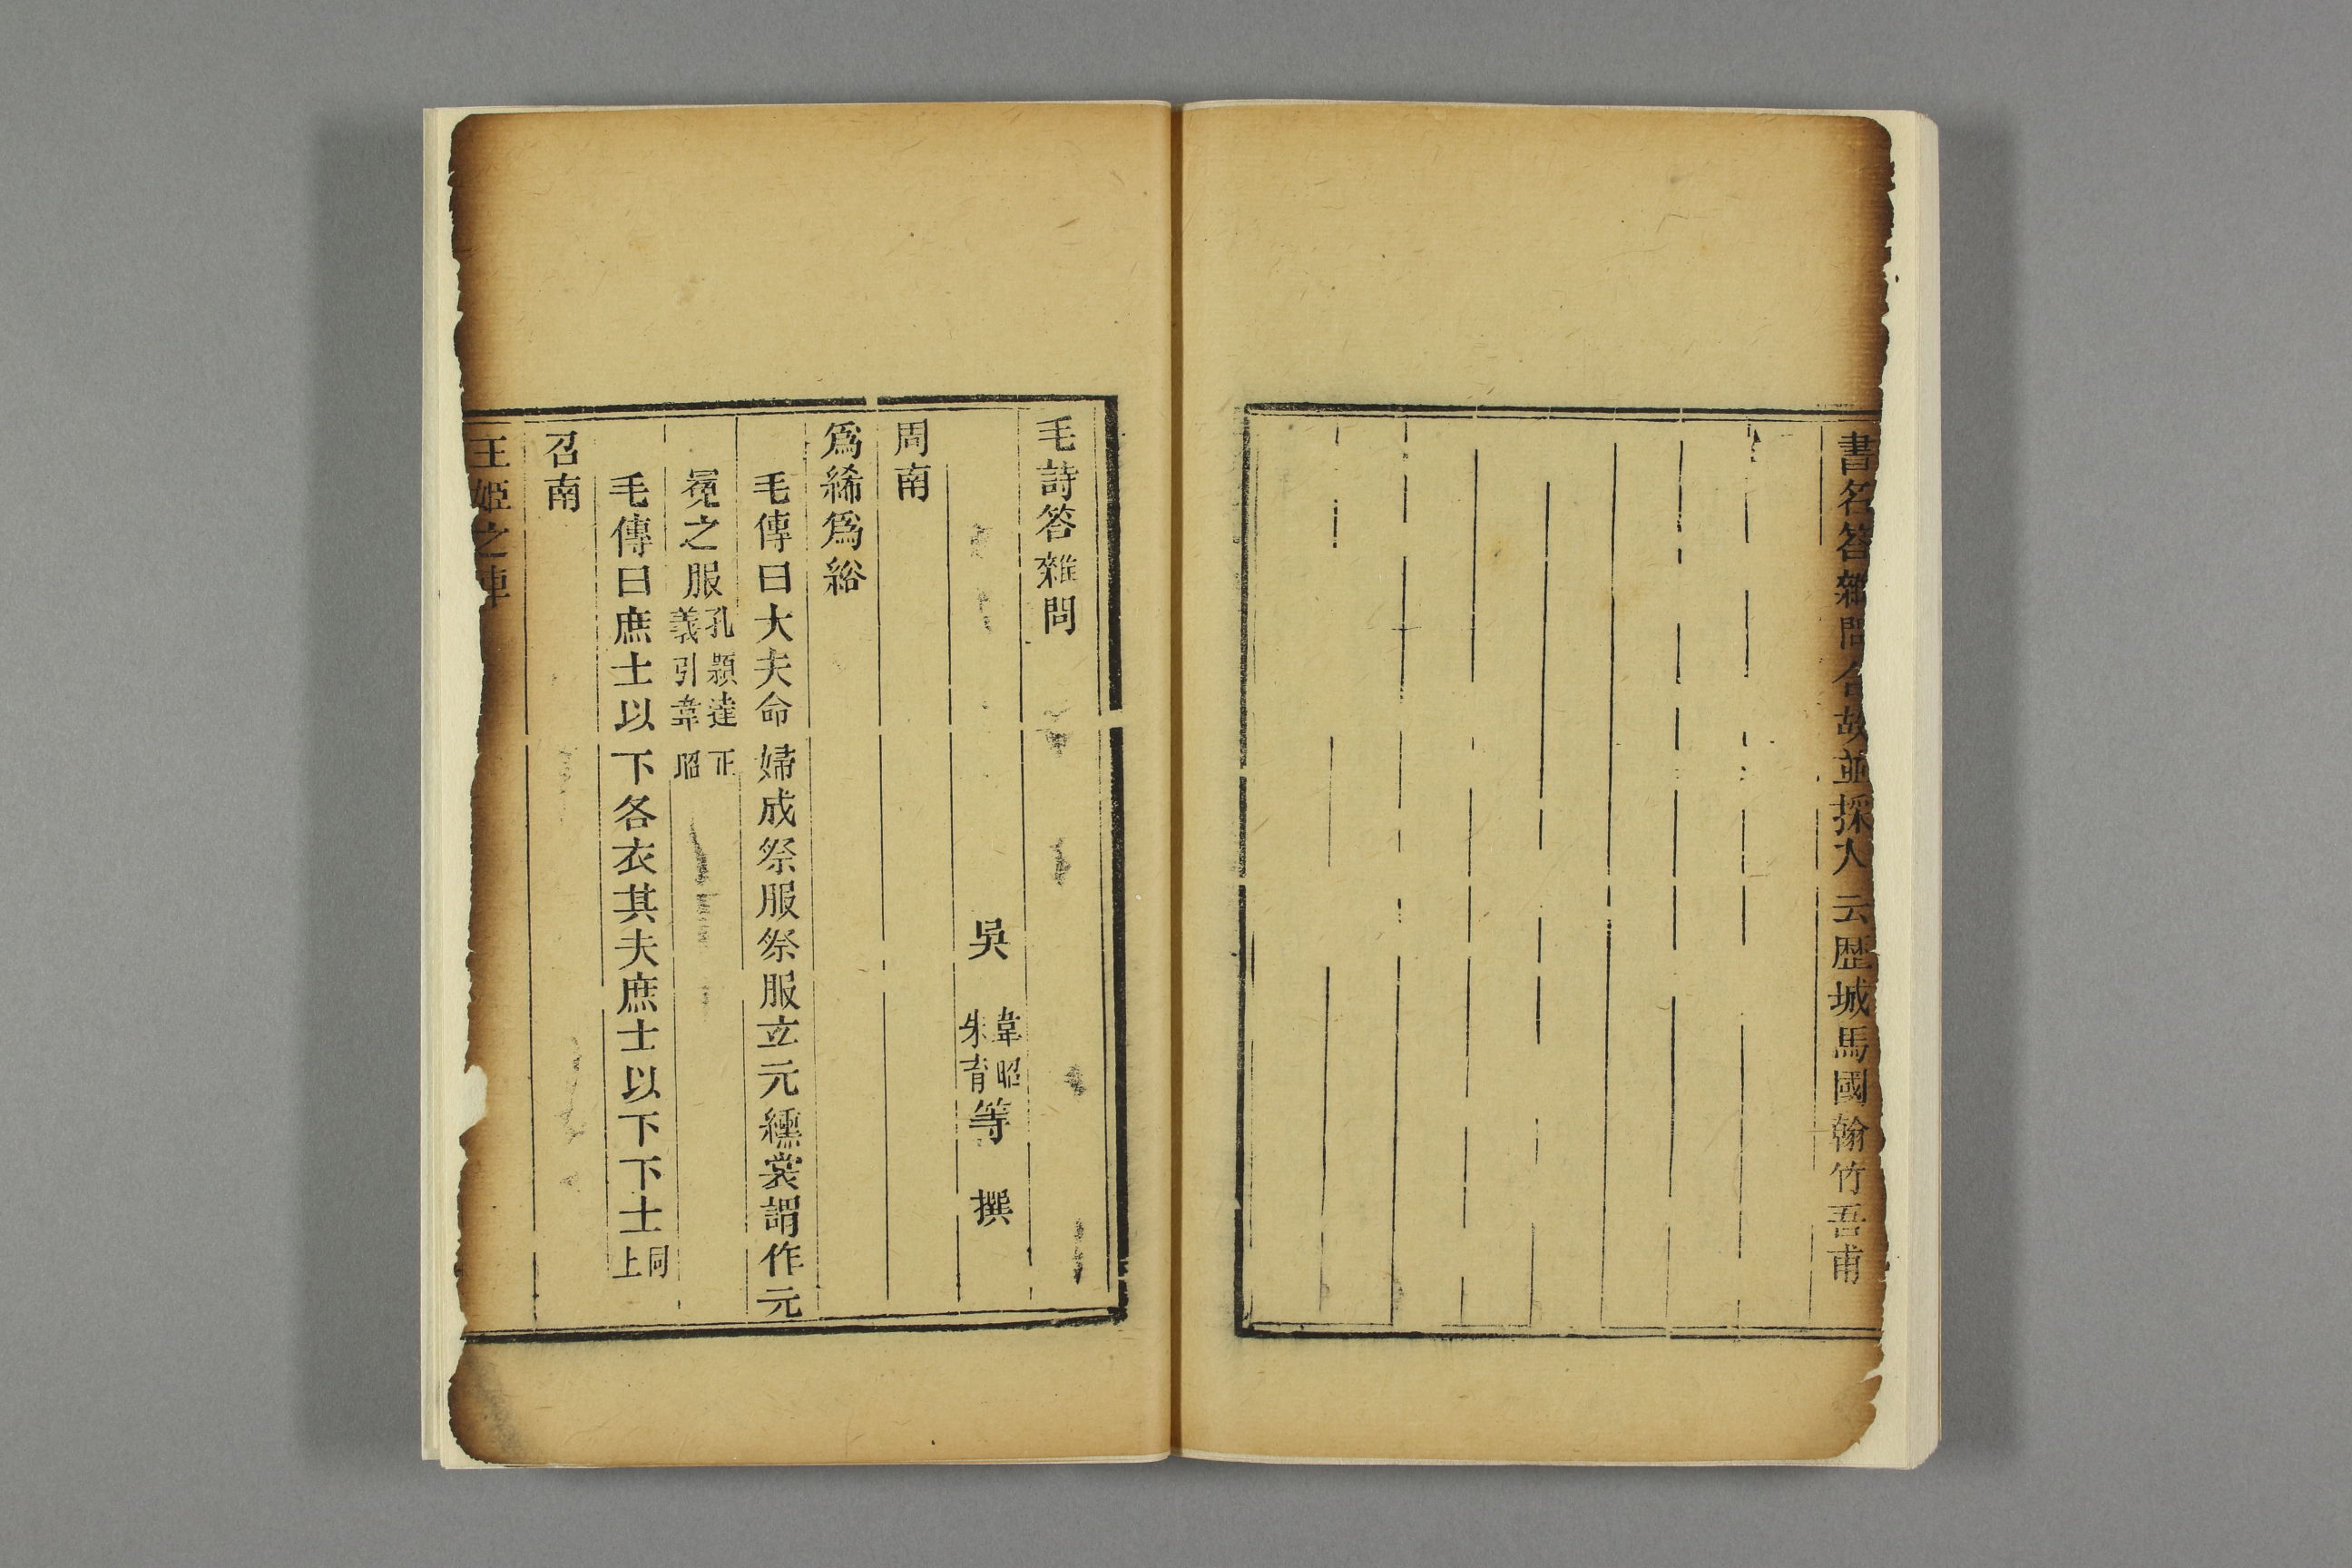 書名答雜問今故並採入云歷城馬國翰竹吾甫
毛詩答雜問
吳 韋昭朱育等 撰
周南
爲絺爲綌
毛傳曰大夫命婦成祭服祭服玄元纁裳謂作元
冕之服孔穎達正義引韋昭
毛傳曰庶士以下各衣其夫庶士以下下士同上
召南
王姬之車